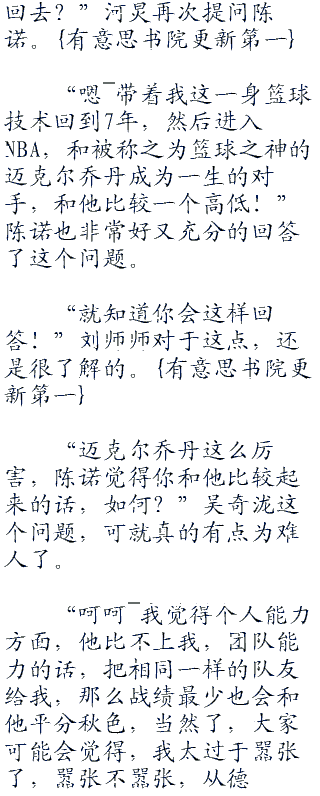 回去？”河炅再次提问陈
诺。{有意思书院更新第一}
“嗯¯带着我这一身篮球
技术回到7年，然后进入
NBA，和被称之为篮球之神的
迈克尔乔丹成为一生的对
手，和他比较一个高低！”
陈诺也非常好又充分的回答
了这个问题。
“就知道你会这样回
答！”刘师师对于这点，还
是很了解的。{有意思书院更
新第一}
“迈克尔乔丹这么厉
害，陈诺觉得你和他比较起
来的话，如何？”吴奇泷这
个问题，可就真的有点为难
人了。
“呵呵¯我觉得个人能力
方面，他比不上我，团队能
力的话，把相同一样的队友
给我，那么战绩最少也会和
他平分秋色，当然了，大家
可能会觉得，我太过于嚣张
了，嚣张不嚣张，从德